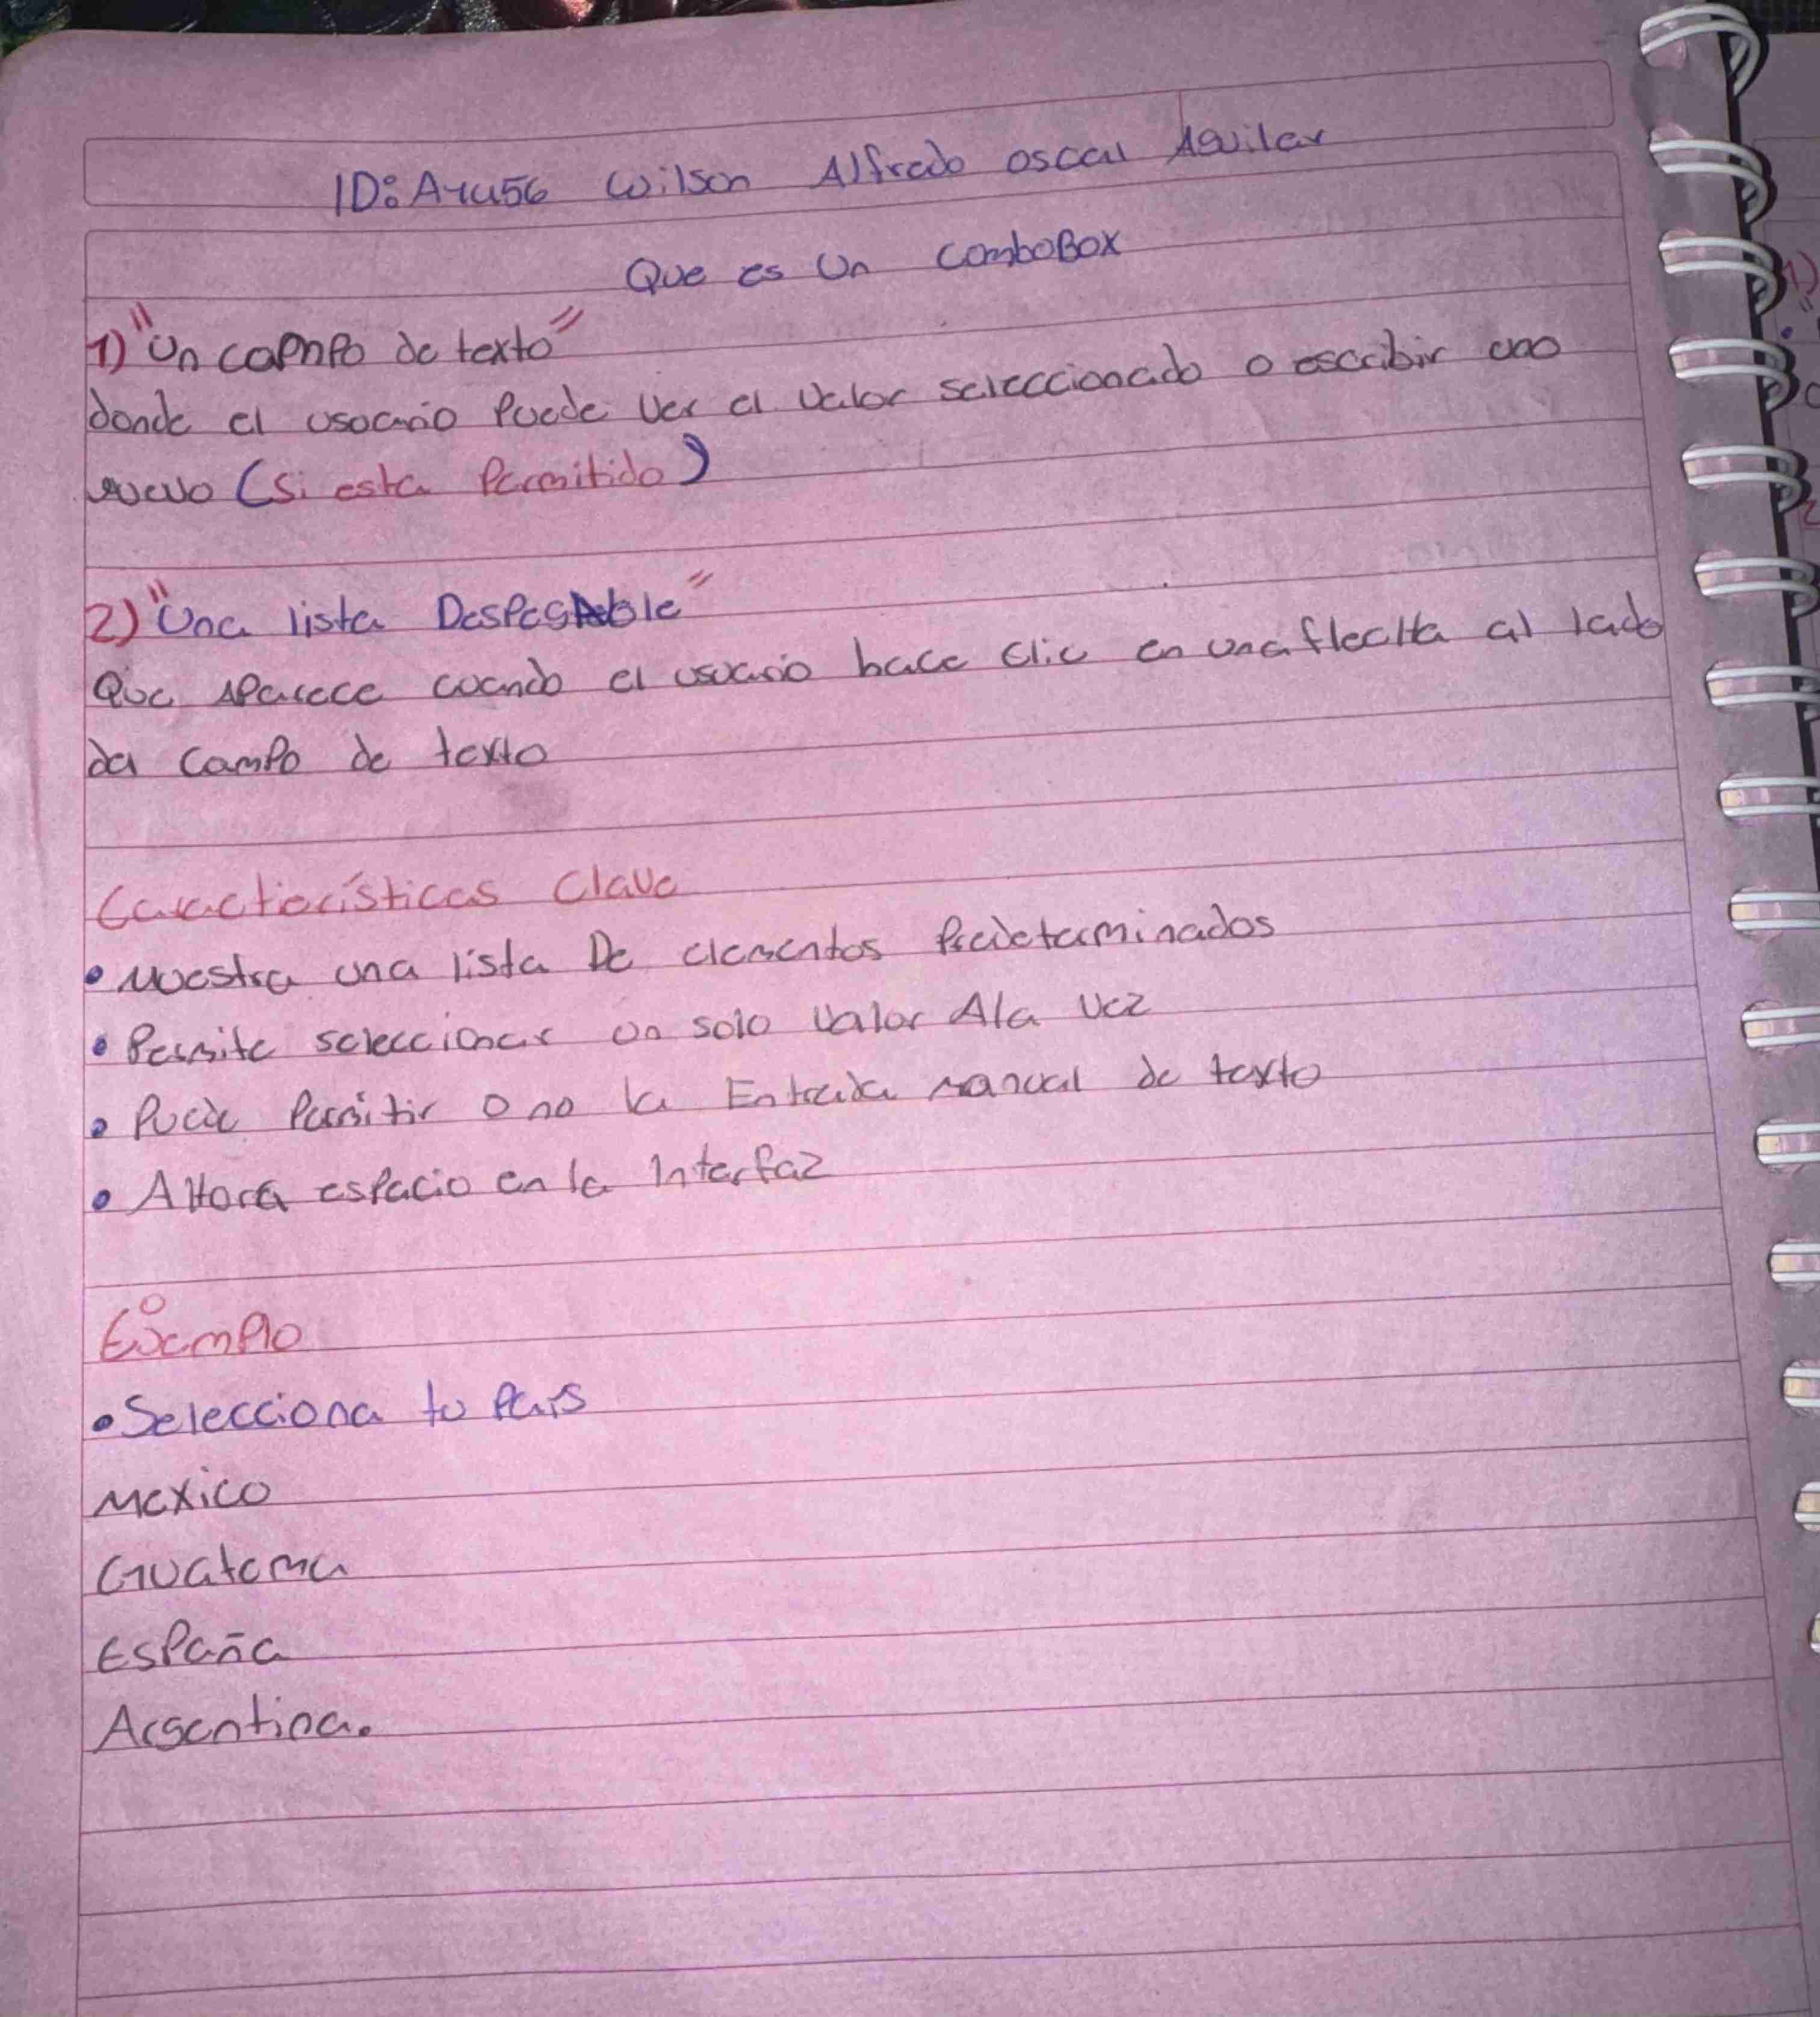 Wilson Alfredo oscal Aguilar
Que es Un ComboBox
1) "Un campo de texto"
donde el usuario Puede Ver el Valor seleccionado o escribir uno
nuevo (Si esta Permitido)
2) "Una lista Despegable"
Que Aparece cuando el usuario hace clic en una flecHa al lado
del campo de texto
Caractierísticas Clave
• Muestra una lista De elementos Predeterminados
• Permite seleccionar un solo Valor Ala vez
• Puede Permitir o no la Entrada manual de texto
• AHora espacio en la Interfaz
Ejemplo
• Selecciona tu País
Mexico
Guatema
España
Argentina.